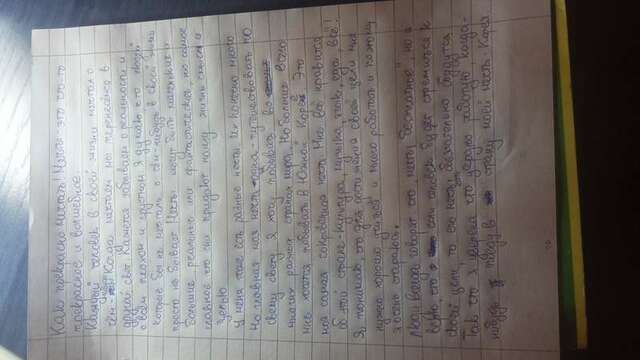 Как прекрасно мечтать! Мечты - это что-то
прекрасное и волшебное.
Каждый человек в своей жизни мечтал о
чём-то. Когда мечтаем мы перенесёмся в
другой свет. Кажется забываем о реальности и
о всём плохом и грустном. Я думаю что людей
которые бы не мечтали о чём-нибудь в своей жизни
просто не бывает. Мечты могут быть маленькие и
большие реальные или фантастические, но самое
главное что они придают нашу жизнь смысл и
целью.
У меня тоже есть разные мечты. Их конечно много
Но главная моя мечта одна - путешествовать по
всему свету. Я хочу побывать во
многих разных странах мира. Но больше всего
мне хочется побывать в Южной Корее. Это
моя самая сокровенная мечта. Мне всё нравится
об этой стране - культура, музыка, язык, еда, всё!
Я понимаю, что для достижения своей цели мне
нужно хорошо учиться и много работать и поэтому
я очень стараюсь.
Люди всегда говорят что „мечты бесплатное", но я
верю, что если человек будет стремиться к
своей цели, то его мечты обязательно сбудутся
Так что я уверена что упорную работую когда-
нибудь я поеду в страну моей мечты - Корея